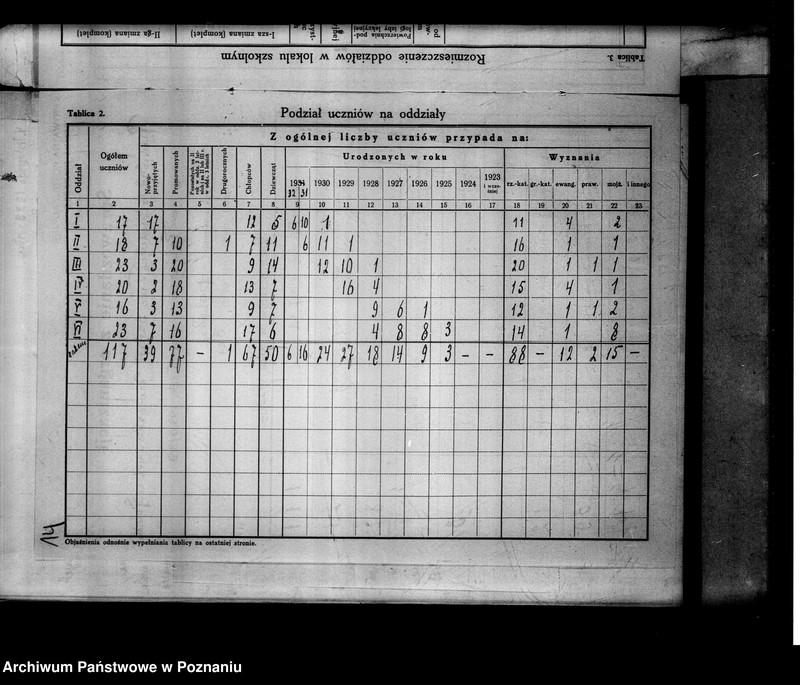 II-ga zmiana (komplet)
I-sza zmiana (komplet)
Rozmieszczenie oddziałów w lokalu szkolnym
Tablica 3.
Tablica 2.
Podział uczniów na oddziały
Oddział
Ogółem uczniów
Z ogólnej liczby uczniów przypada na:
Nowo-przyjętych
Promowanych
Drugorocznych
Chłopców
Dziewcząt
Urodzonych w roku
Wyznania
1931 1930 1929 1928 1927 1926 1925 1924 1923 i wcześniej
32 31
rz.-kat. gr.-kat. ewang. praw. mojż. i innego
1 2 3 4 5 6 7 8 9 10 11 12 13 14 15 16 17 18 19 20 21 22 23
I 17 17 12 5 6 10 1 11 4 2
II 18 7 10 1 7 11 6 11 1 16 1 1
III 23 3 20 9 14 12 10 1 20 1 1 1
IV 20 2 18 13 7 16 4 15 4 1
V 16 3 13 9 7 9 6 1 12 1 1 2
VI 23 7 16 17 6 4 8 8 3 14 1 8
117 39 77 - 1 67 50 6 16 24 27 18 14 9 3 - - 88 - 12 2 15 -
14
Objaśnienia odnośnie wypełniania tablicy na ostatniej stronie.
Archiwum Państwowe w Poznaniu